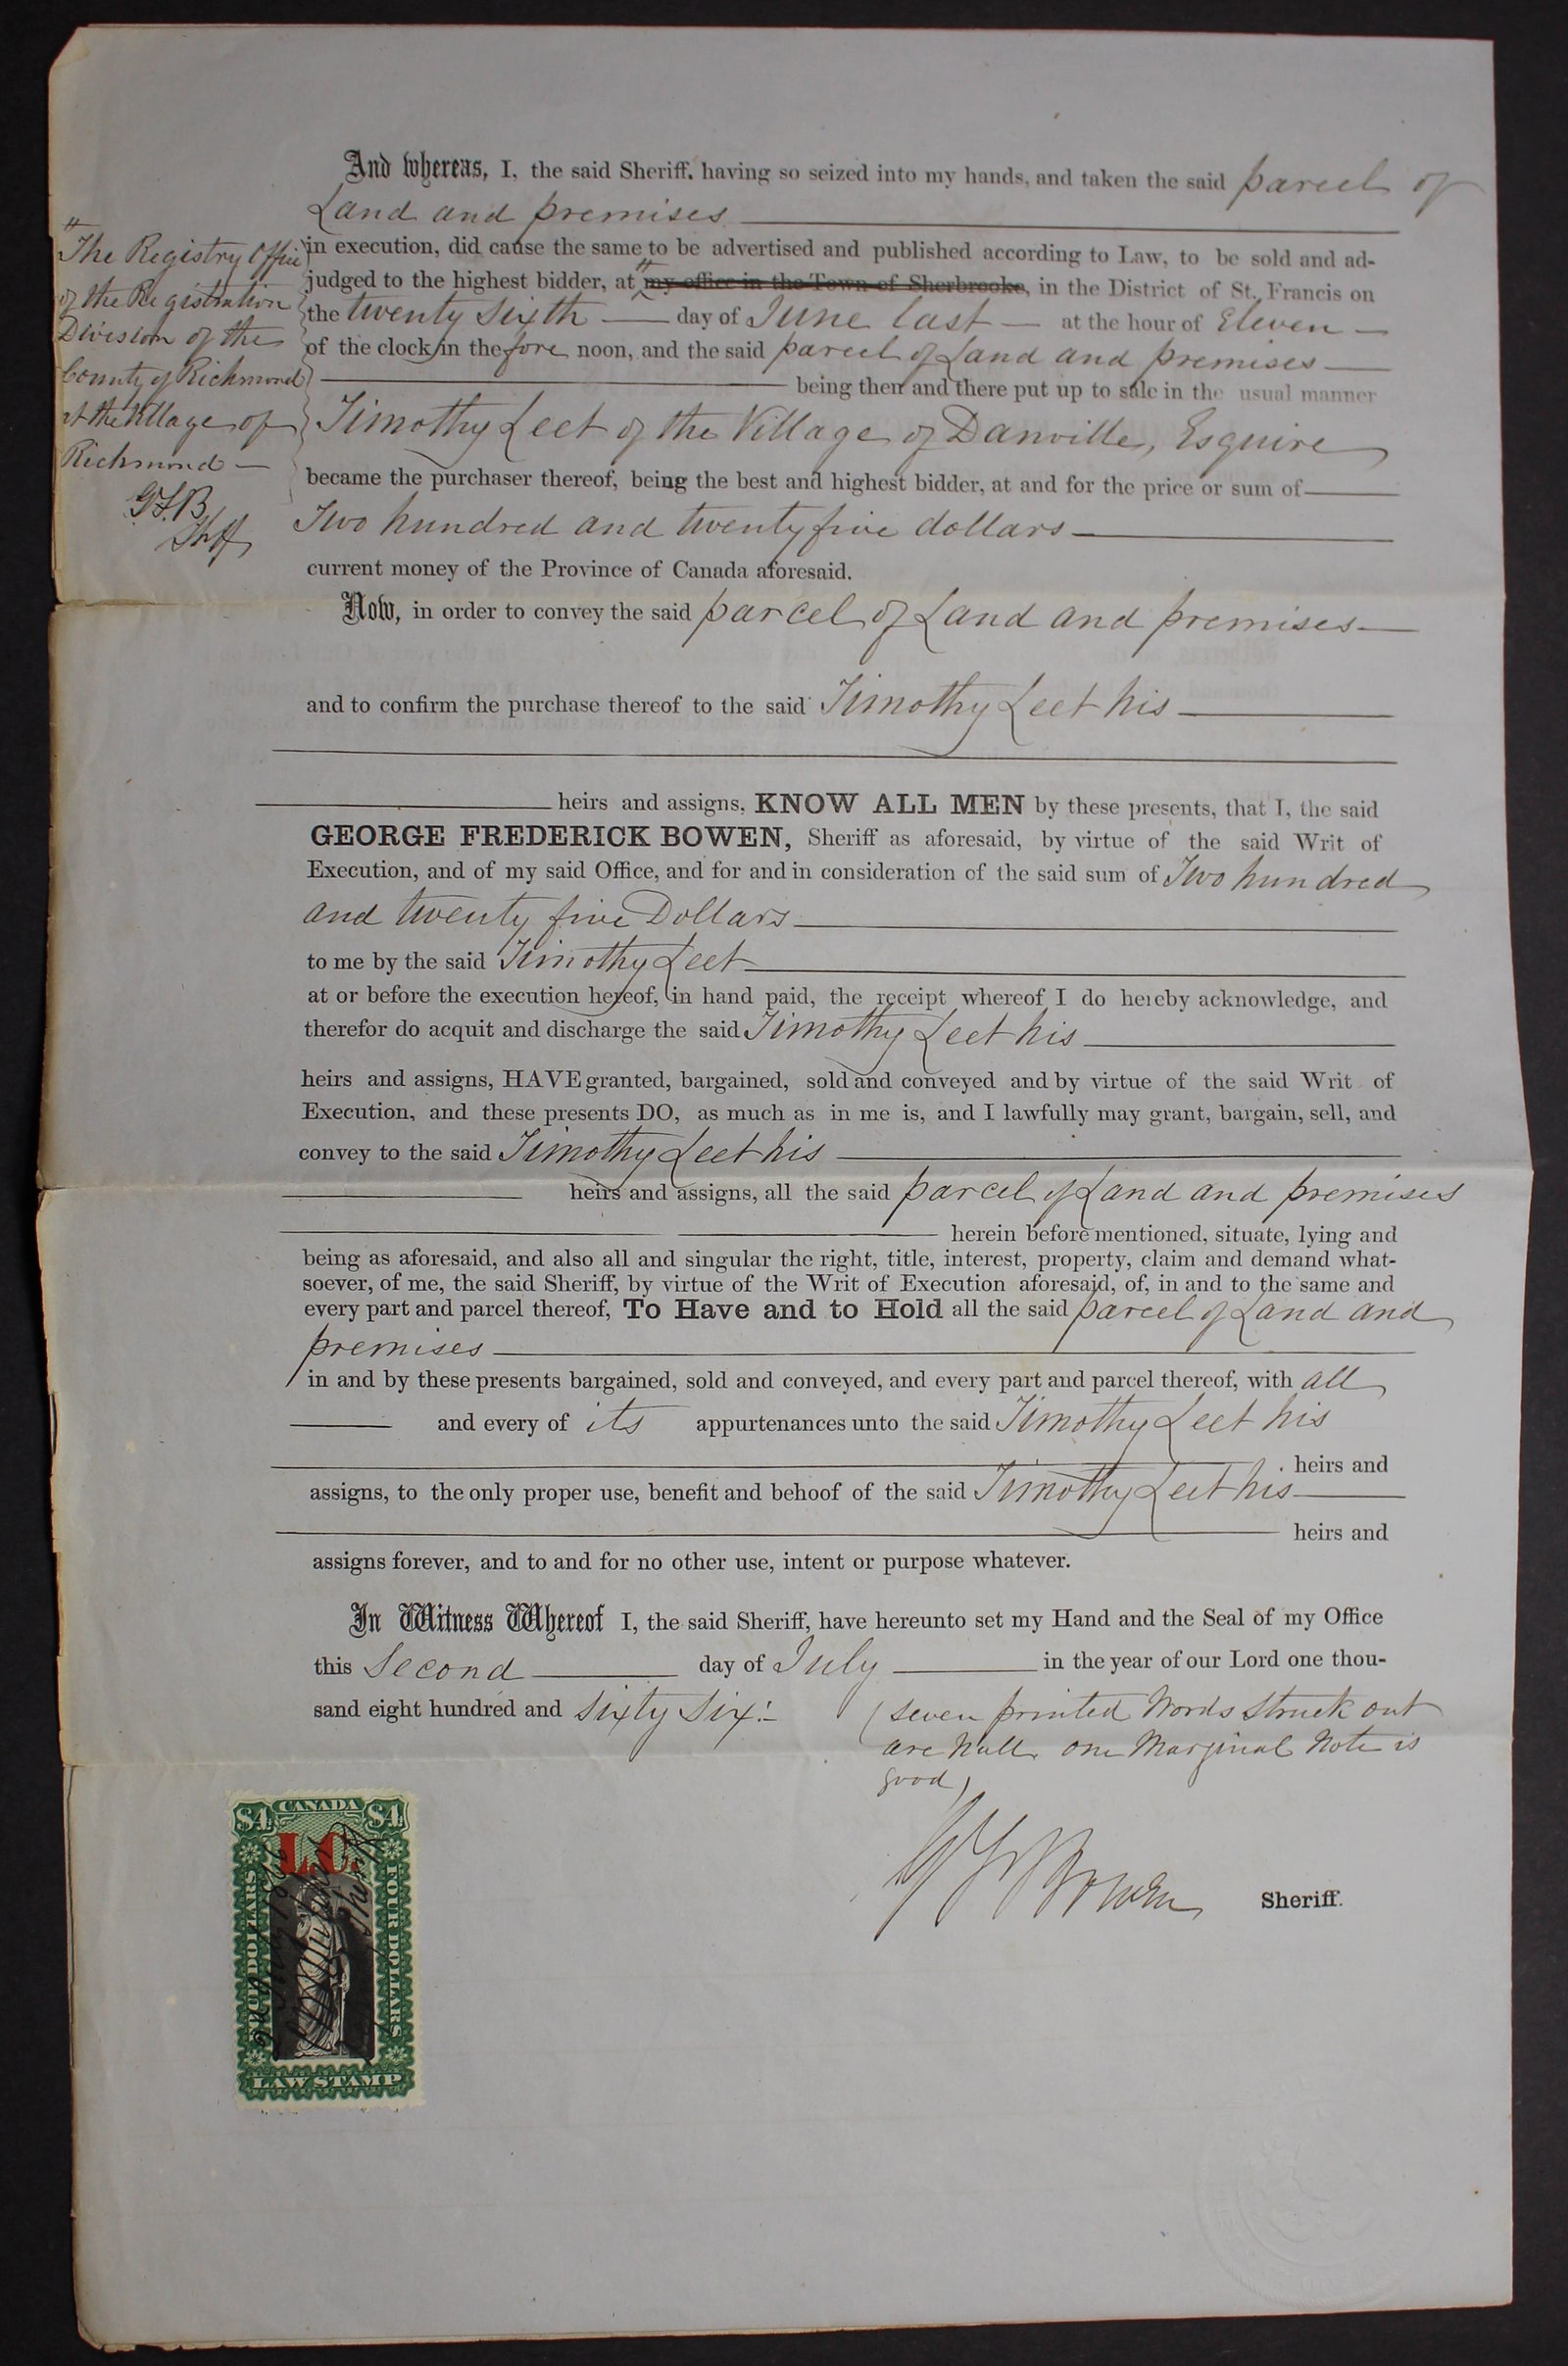 And whereas, I, the said Sheriff, having so seized into my hands, and taken the said parcel of
Land and premises
in execution, did cause the same to be advertised and published according to Law, to be sold and ad-
judged to the highest bidder, at " my office in the Town of Sherbrooke, in the District of St. Francis on
the twenty sixth day of June last at the hour of Eleven
of the clock in the fore noon, and the said parcel of Land and premises
being then and there put up to sale in the usual manner
Timothy Leet of the Village of Danville, Esquire
became the purchaser thereof, being the best and highest bidder, at and for the price or sum of
Two hundred and twenty five dollars
current money of the Province of Canada aforesaid.
"The Registry Office
of the Registration
Division of the
County of Richmond
at the Village of
Richmond
GFB
Shff
Now, in order to convey the said parcel of Land and premises
and to confirm the purchase thereof to the said Timothy Leet his
heirs and assigns, KNOW ALL MEN by these presents, that I, the said
GEORGE FREDERICK BOWEN, Sheriff as aforesaid, by virtue of the said Writ of
Execution, and of my said Office, and for and in consideration of the said sum of Two hundred
and twenty five Dollars
to me by the said Timothy Leet
at or before the execution hereof, in hand paid, the receipt whereof I do hereby acknowledge, and
therefor do acquit and discharge the said Timothy Leet his
heirs and assigns, HAVE granted, bargained, sold and conveyed and by virtue of the said Writ of
Execution, and these presents DO, as much as in me is, and I lawfully may grant, bargain, sell, and
convey to the said Timothy Leet his
heirs and assigns, all the said parcel of Land and premises
herein before mentioned, situate, lying and
being as aforesaid, and also all and singular the right, title, interest, property, claim and demand what-
soever, of me, the said Sheriff, by virtue of the Writ of Execution aforesaid, of, in and to the same and
every part and parcel thereof, To Have and to Hold all the said parcel of Land and
premises
in and by these presents bargained, sold and conveyed, and every part and parcel thereof, with all
and every of its appurtenances unto the said Timothy Leet his
heirs and
assigns, to the only proper use, benefit and behoof of the said Timothy Leet his
heirs and
assigns forever, and to and for no other use, intent or purpose whatever.
In Witness Whereof I, the said Sheriff, have hereunto set my Hand and the Seal of my Office
this Second day of July in the year of our Lord one thou-
sand eight hundred and sixty six:
(seven printed Words struck out
are Null, one Marginal Note is
good)
GF Bowen Sheriff.
$4 CANADA $4
L.C.
FOUR DOLLARS
FOUR DOLLARS
LAW STAMP